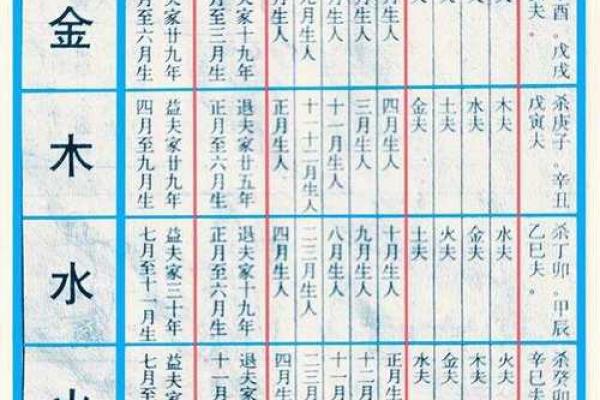 金
夫家廿九年
月至六月生
夫家十九年
月至三月生
月生人
月生人
月生人
月生人
月生人
酉。戊戌
夫。
木
益夫家廿九年
四月至九月生
退夫家廿五年
正月至六月生
正月生人
十一十二月生人
十一月生人
三月生人
四月生人
金夫
土夫
水夫
木夫
杀庚子.辛丑
戊寅夫
水
益夫家三十年
七月至十一月生
退夫家十九年
正月至六月生
四月生人
二三月生人
八月生人
九月生人
十月生人
土夫
火夫
金夫
水夫
杀丁卯.甲辰
乙巳夫。
益夫家
七月至
退夫家
十一月
四月
二三月
十一月
十二月
正月生
水夫
金夫
木夫
火夫
杀癸卯
辛巳夫